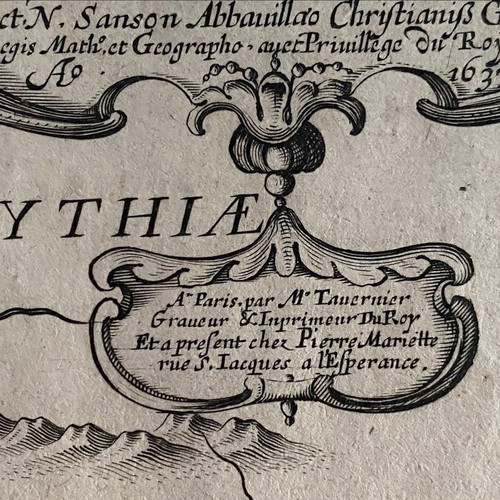 ct. N. Sanson Abbauillæo Christianiß G
egis Math.º et Geographo, auet Priuillege du Roy
Aº 163
YTHIÆ
A Paris, par Mr Tauernier
Graueur & Inprimeur Du Roy
Et a present chez Pierre Mariette
rue S. Iacques a l'Esperance.